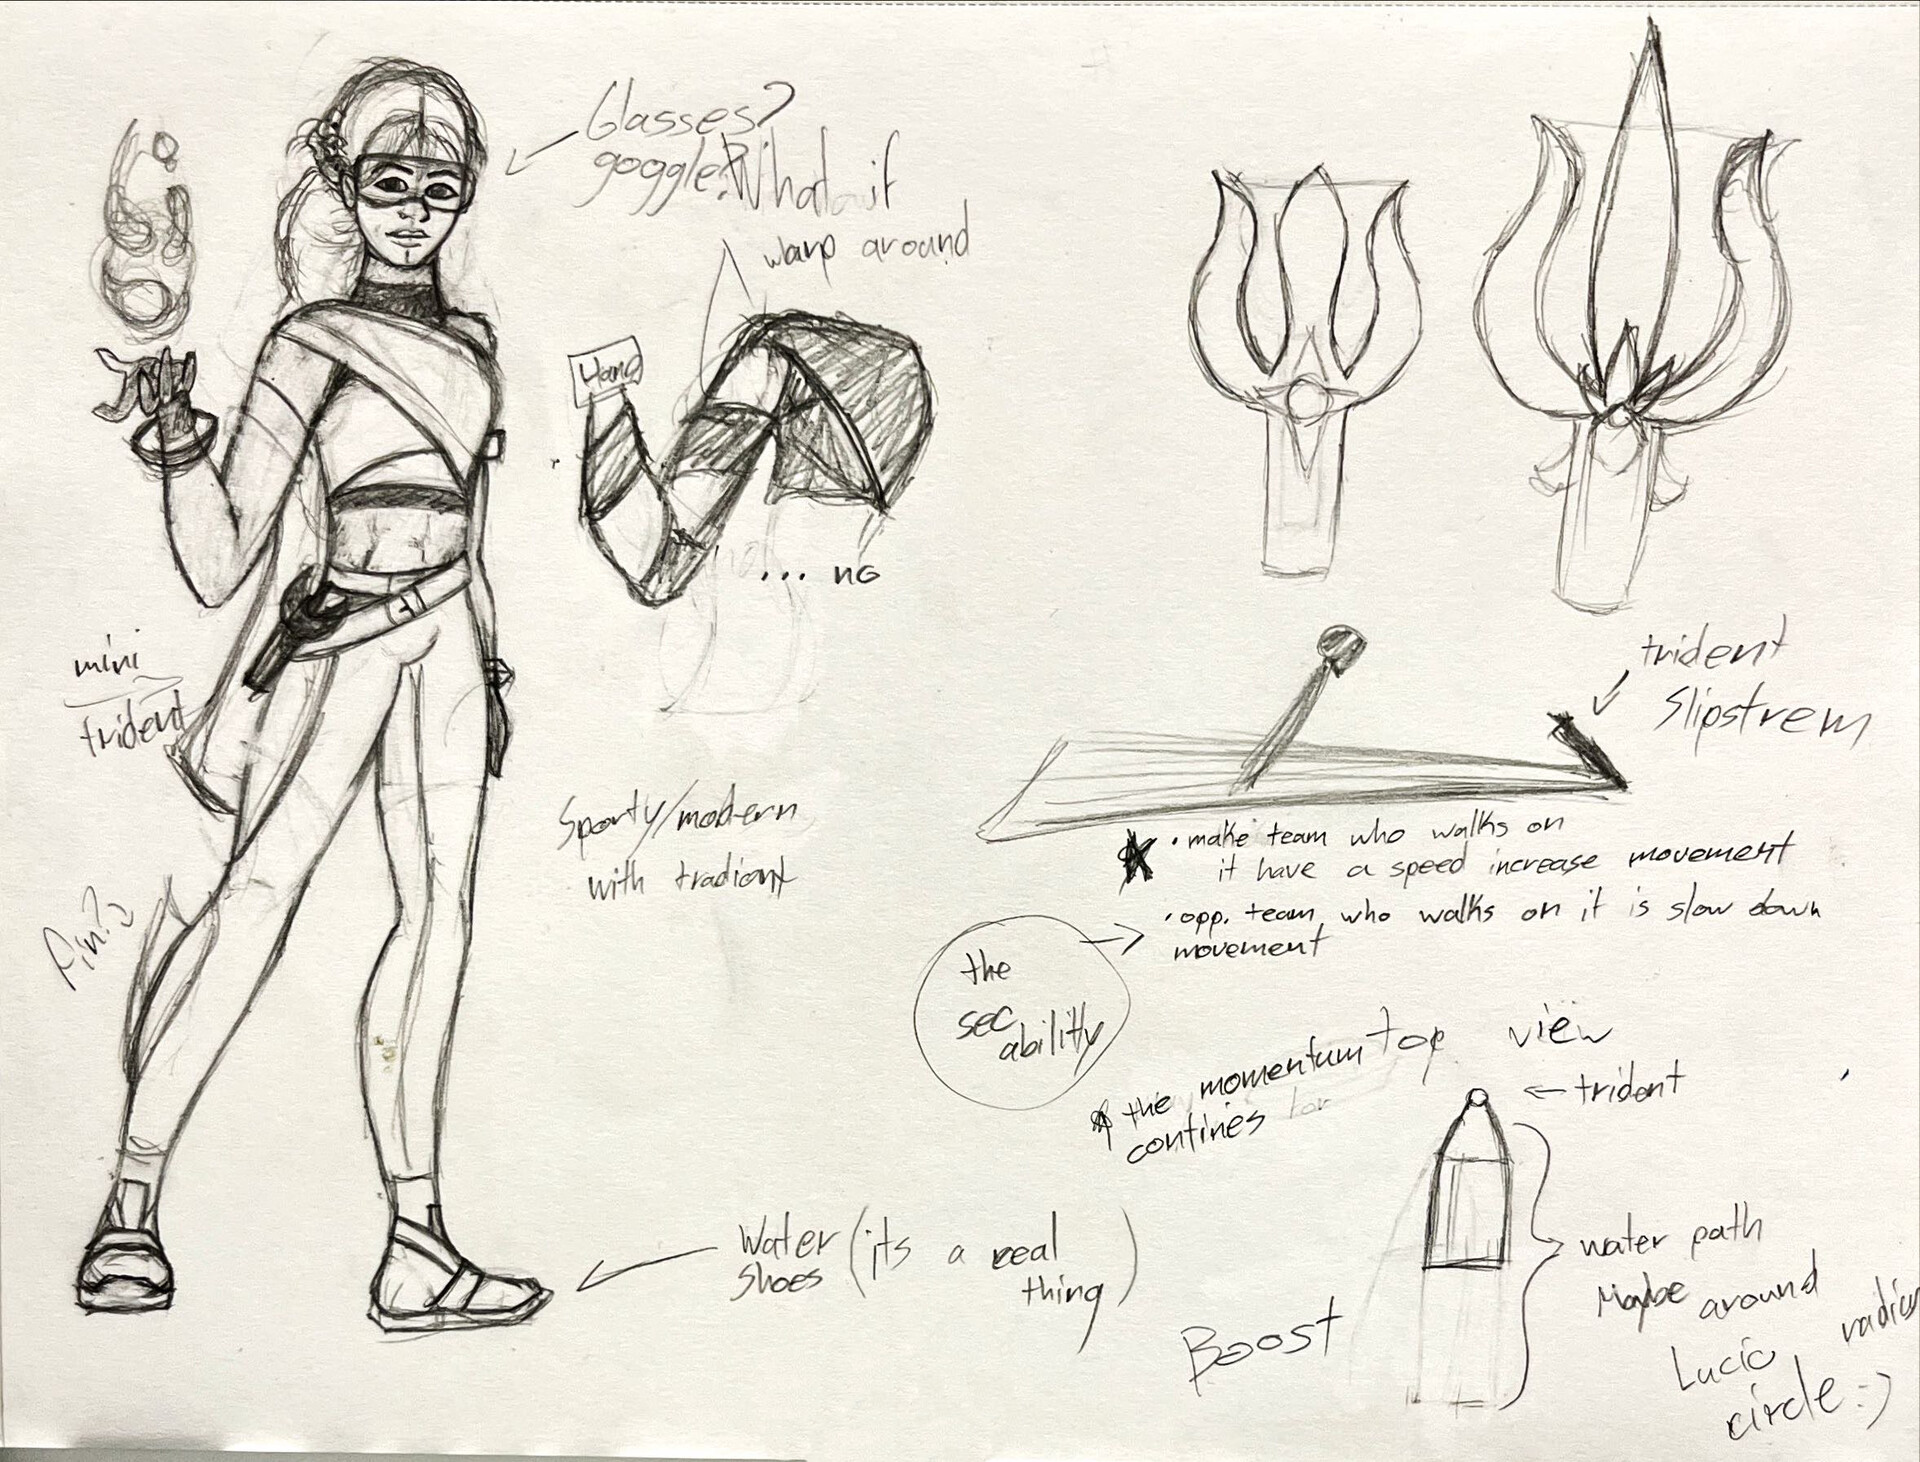 Glasses?
goggle?
What if
warp around
Hand
... no
mini
trident
Sporty/modern
with tradiont
Fin?
trident
Slipstrem
• make team who walks on
it have a speed increase movement
• opp. team who walks on it is slow down
movement
the
sec
ability
the momentum
contines for
top view
trident
water path
Maybe around
Lucio radius
circle :)
Boost
Water
shoes
(its a real
thing)